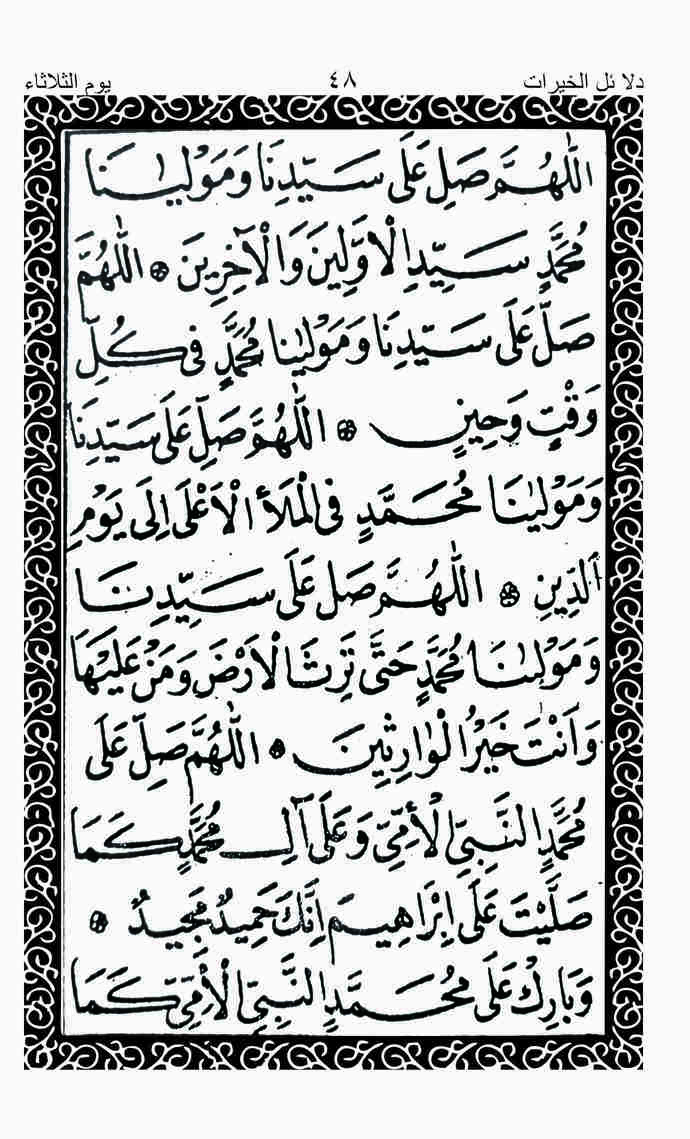 دلائل الخيرات ٤٨ يوم الثلاثاء
اَللّٰهُمَّ صَلِّ عَلَى سَيِّدِنَا وَمَوْلٰينَا
مُحَمَّدٍ سَيِّدِ الْاَوَّلِينَ وَالْآخِرِينَ ۞ اَللّٰهُمَّ
صَلِّ عَلَى سَيِّدِنَا وَمَوْلٰينَا مُحَمَّدٍ فِى كُلِّ
وَقْتٍ وَحِينٍ ۞ اَللّٰهُمَّ صَلِّ عَلَى سَيِّدِنَا
وَمَوْلٰينَا مُحَمَّدٍ فِى الْمَلَأِ الْاَعْلَى اِلَى يَوْمِ
الدِّينِ ۞ اَللّٰهُمَّ صَلِّ عَلَى سَيِّدِنَا
وَمَوْلٰينَا مُحَمَّدٍ حَتَّى تَرِثَ الْاَرْضَ وَمَنْ عَلَيْهَا
وَاَنْتَ خَيْرُ الْوٰارِثِينَ ۞ اَللّٰهُمَّ صَلِّ عَلَى
مُحَمَّدٍ النَّبِىِّ الْاُمِّىِّ وَعَلَى آلِ مُحَمَّدٍ كَمَا
صَلَّيْتَ عَلَى اِبْرَاهِيمَ اِنَّكَ حَمِيدٌ مَجِيدٌ ۞
وَبَارِكْ عَلَى مُحَمَّدٍ النَّبِىِّ الْاُمِّىِّ كَمَا